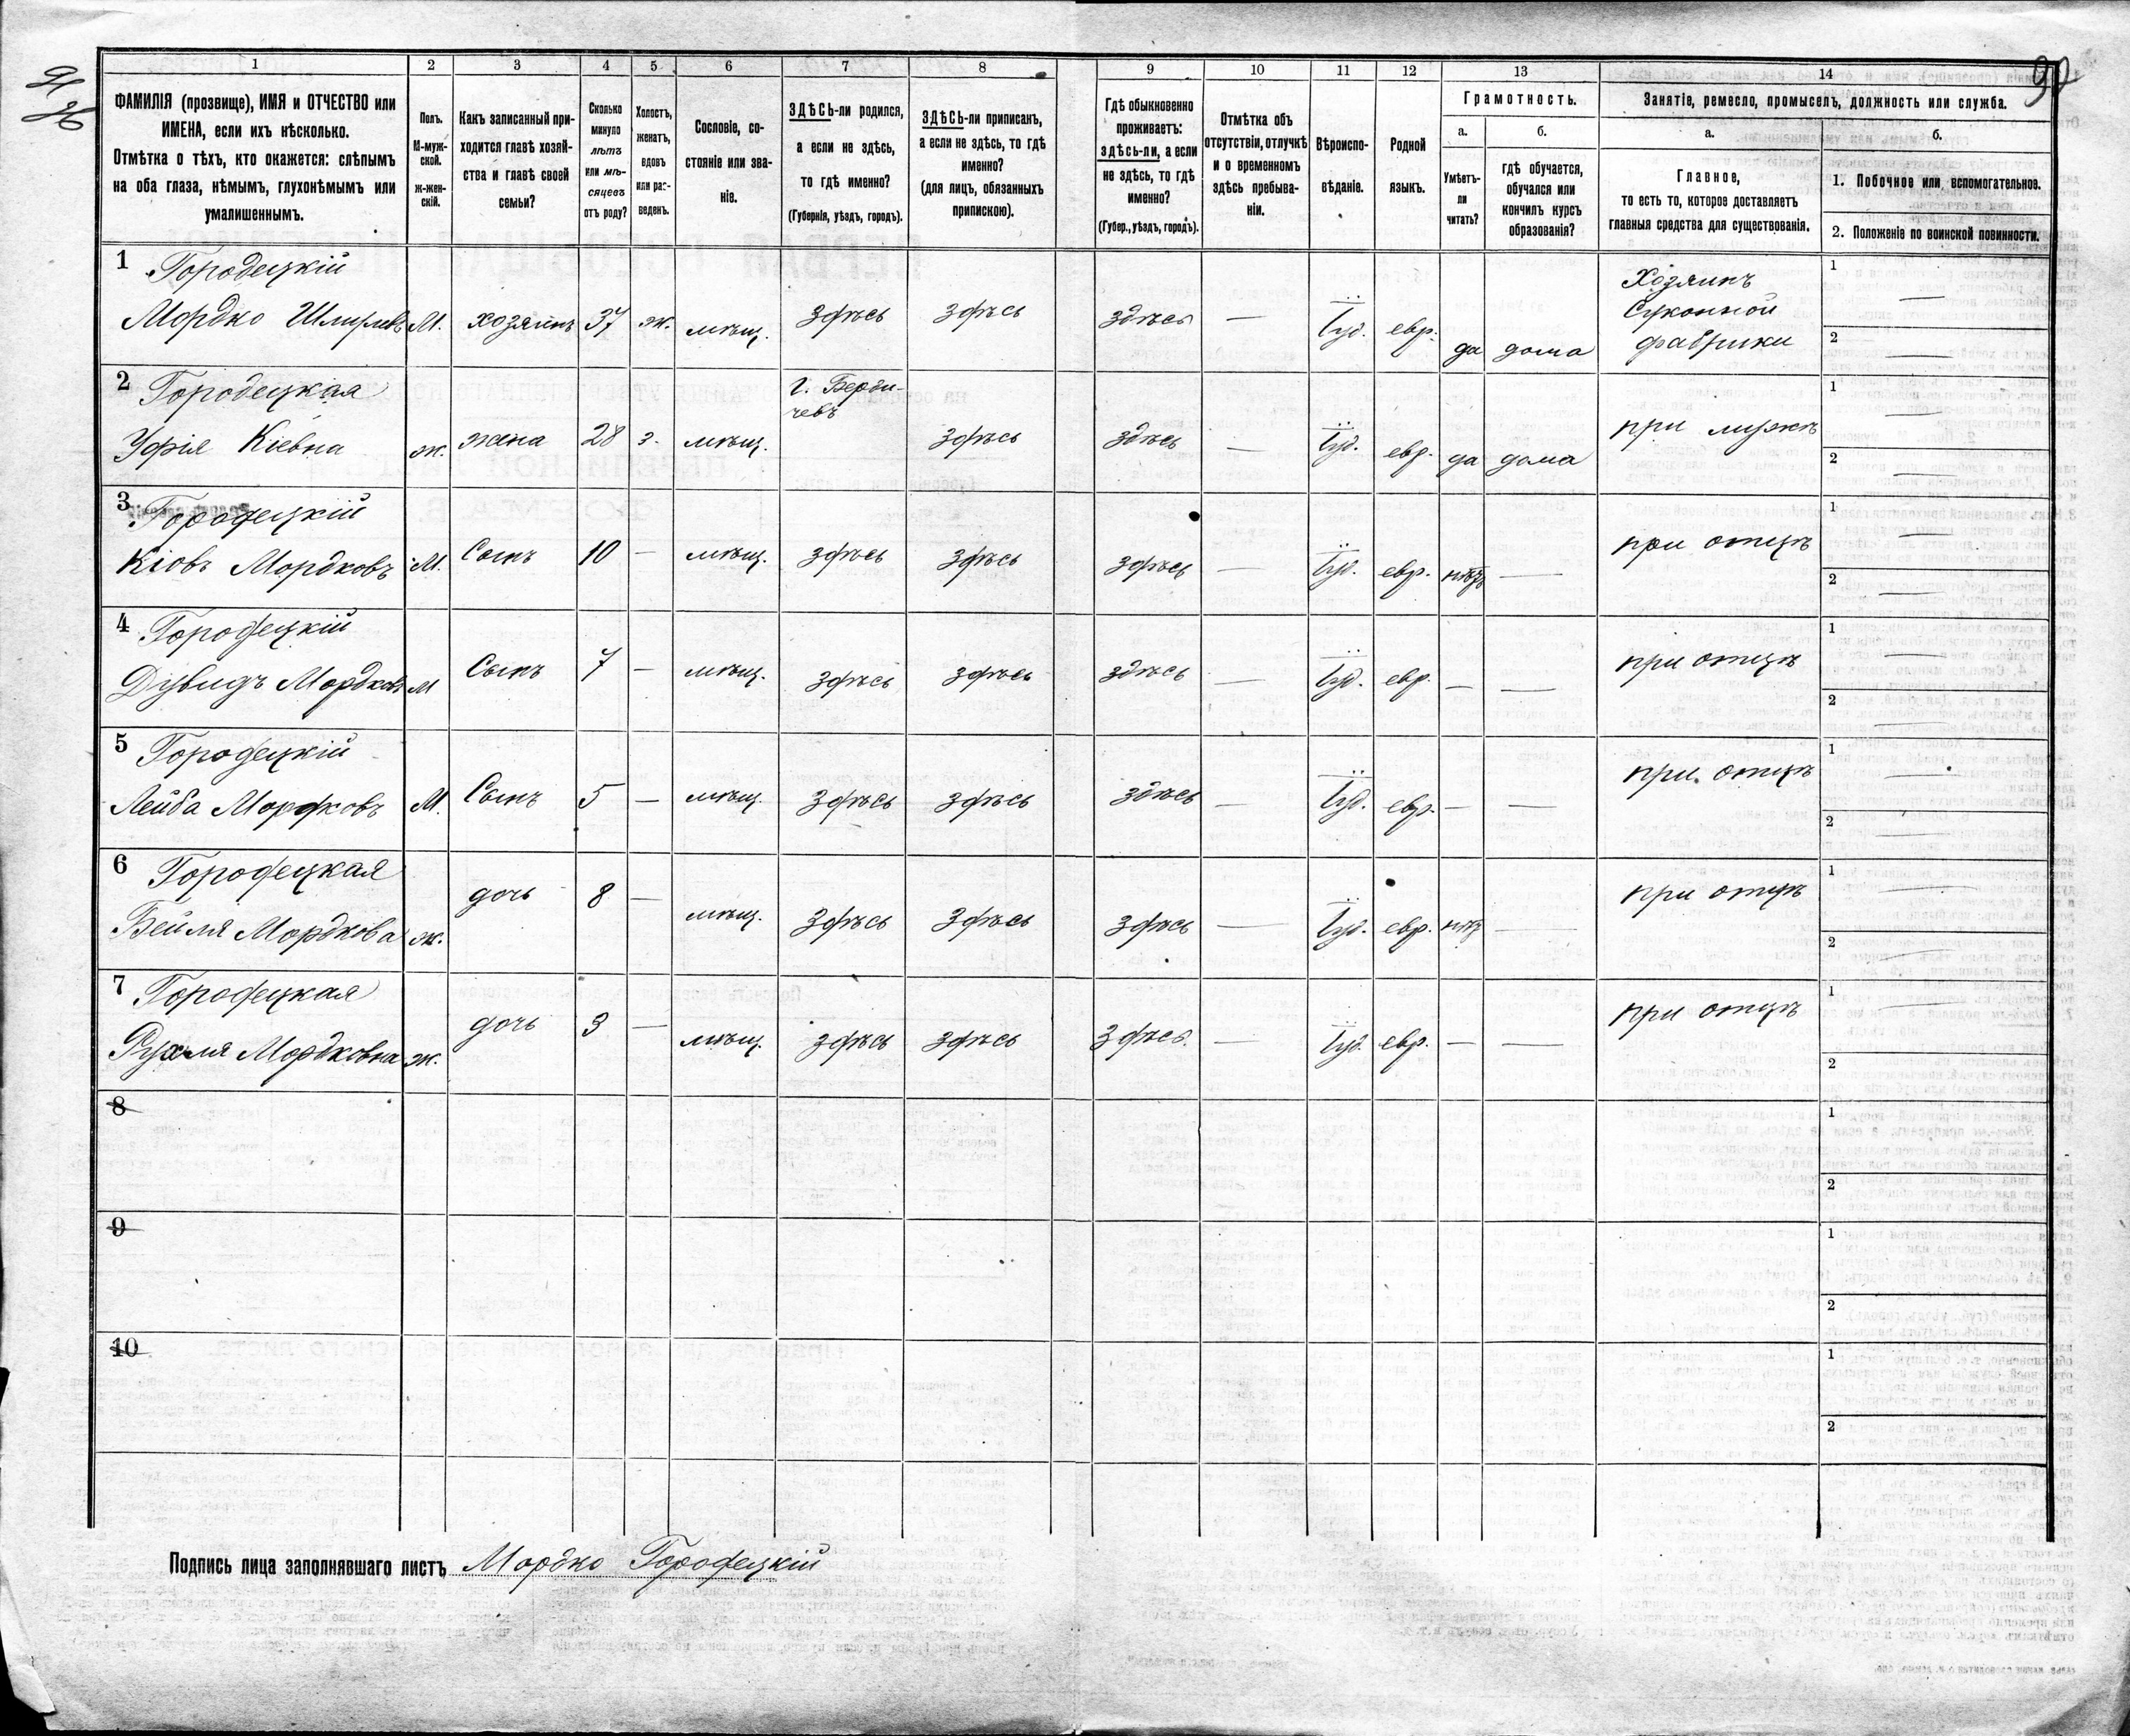 90
1
2
3
4
5
6
7
8
9
10
11
12
13
14
ФАМИЛІЯ (прозвище), ИМЯ и ОТЧЕСТВО или
ИМЕНА, если ихъ нѣсколько.
Отмѣтка о тѣхъ, кто окажется: слѣпымъ
на оба глаза, нѣмымъ, глухонѣмымъ или
умалишеннымъ.
Полъ.
М-муж-
ской.
ж-жен-
скій.
Какъ записанный при-
ходится главѣ хозяй-
ства и главѣ своей
семьи?
Сколько
минуло
лѣтъ
или мѣ-
сяцевъ
отъ роду?
Холостъ,
женатъ,
вдовъ
или раз-
веденъ.
Сословіе, со-
стояніе или зва-
ніе.
ЗДѢСЬ-ли родился,
а если не здѣсь,
то гдѣ именно?
(Губернія, уѣздъ, городъ).
ЗДѢСЬ-ли приписанъ,
а если не здѣсь, то гдѣ
именно?
(для лицъ, обязанныхъ
припискою).
Гдѣ обыкновенно
проживаетъ:
здѣсь-ли, а если
не здѣсь, то гдѣ
именно?
(Губер., уѣздъ, городъ).
Отмѣтка объ
отсутствіи, отлучкѣ
и о временномъ
здѣсь пребыва-
ніи.
Вѣроиспо-
вѣданіе.
Родной
языкъ.
Грамотность.
а.
Умѣетъ-
ли
читать?
б.
гдѣ обучается,
обучался или
кончилъ курсъ
образованія?
Занятіе, ремесло, промыселъ, должность или служба.
а.
Главное,
то есть то, которое доставляетъ
главныя средства для существованія.
б.
1. Побочное или вспомогательное.
2. Положеніе по воинской повинности.
1 Городецкій
Мордко М. хозяинъ 37 ж. мѣщ. здѣсь здѣсь здѣсь — Іуд. евр. да дома
Хозяинъ
Суконной
фабрики
1 —
2 —
2 Городецкая
Кіевна ж. жена 28 з. мѣщ.
г. Берди-
чевъ
здѣсь здѣсь — Іуд. евр. да дома при мужѣ
1 —
2 —
3 Городецкій
Кіовъ Мордковъ М. Сынъ 10 — мѣщ. здѣсь здѣсь здѣсь — Іуд. евр. нѣтъ — при отцѣ
1 —
2 —
4 Городецкій
Дувидъ Мордковъ М Сынъ 7 — мѣщ. здѣсь здѣсь здѣсь — Іуд. евр. — — при отцѣ
1 —
2 —
5 Городецкій
Лейба Мордковъ М. Сынъ 5 — мѣщ. здѣсь здѣсь здѣсь — Іуд. евр. — — при отцѣ
1 —
2 —
6 Городецкая
Бейля Мордкова ж. дочь 8 — мѣщ. здѣсь здѣсь здѣсь — Іуд. евр. нѣтъ — при отцѣ
1 —
2 —
7 Городецкая
Рухля Мордковна ж. дочь 3 — мѣщ. здѣсь здѣсь здѣсь — Іуд. евр. — — при отцѣ
1 —
2
8
1
2
9
1
2
10
1
2
Подпись лица заполнявшаго листъ Мордко Городецкій